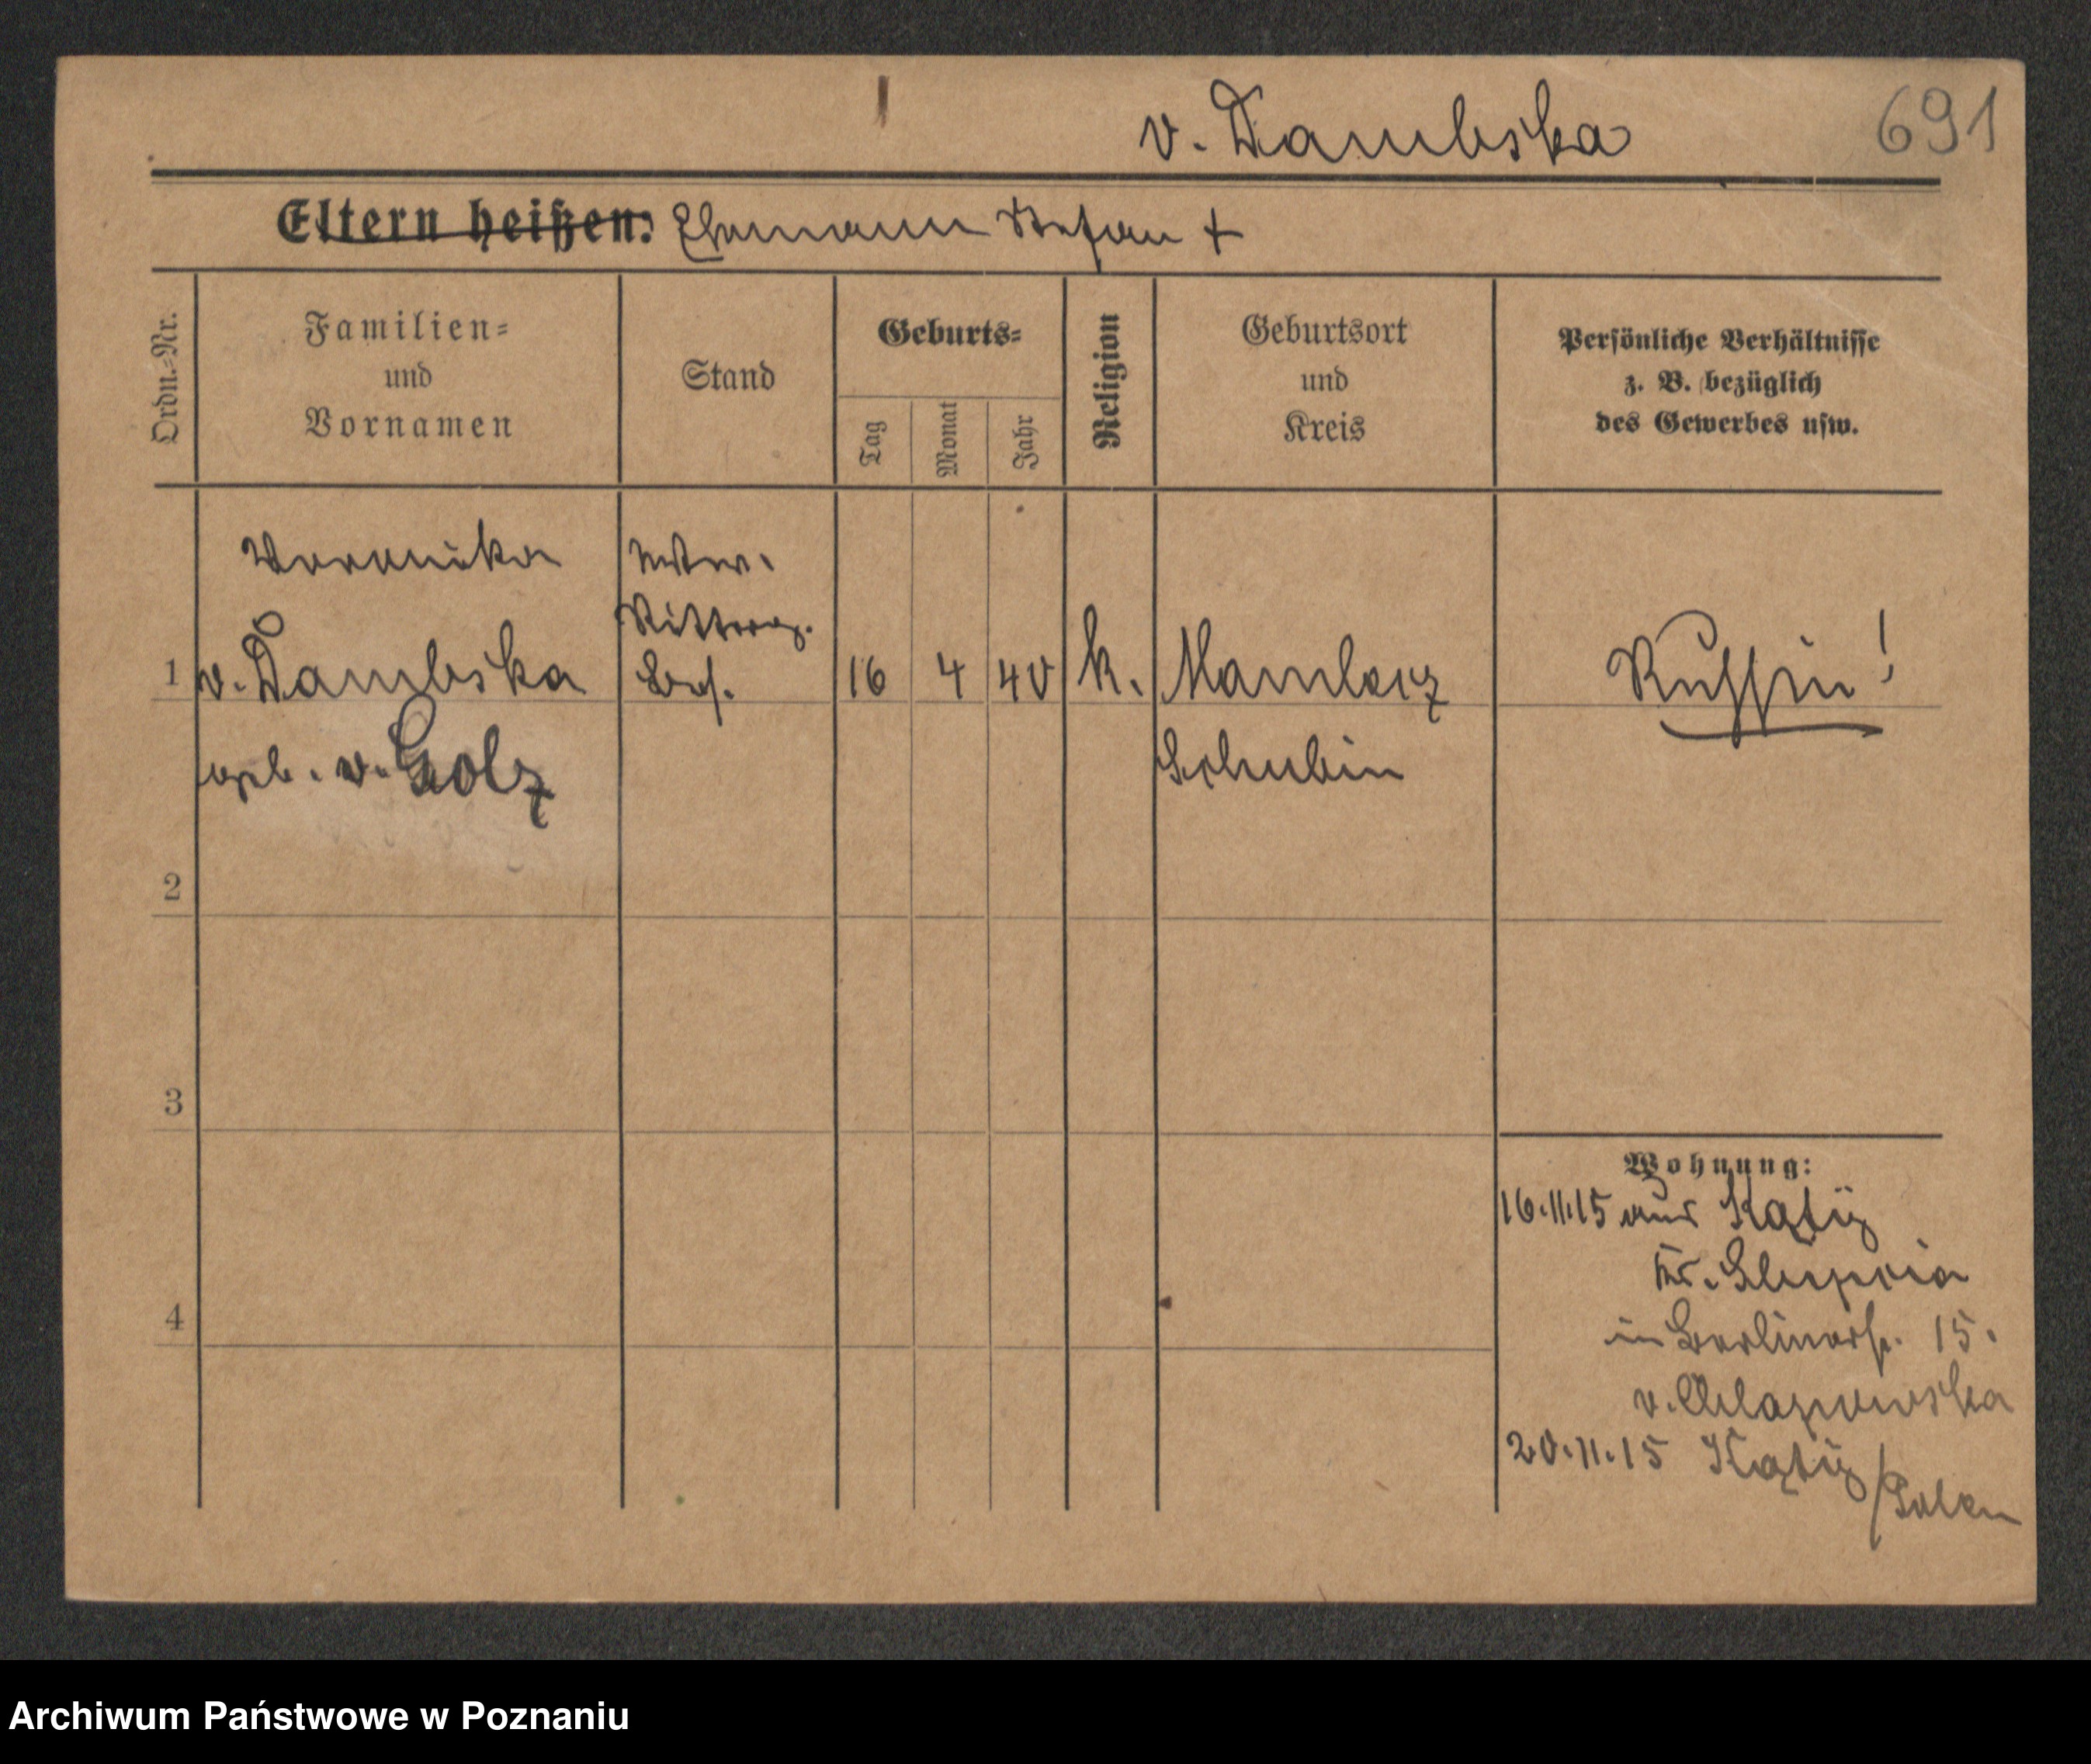 v. Dambska
691
Eltern heißen: Ehemann Stefan +
Ordn.-Nr.
Familien-
und
Vornamen
Stand
Geburts-
Tag
Monat
Jahr
Religion
Geburtsort
und
Kreis
Persönliche Verhältnisse
z. B. bezüglich
des Gewerbes usw.
Veronika
Wtw.
Ritterg.
1 v. Dambska
Bes.
16 4 40 k.
Mamlicz
Russin!
geb. v. Golz
Schubin
2
3
Wohnung:
16.11.15 aus Kąty
Kr. Slupcia
4
in Berlinerstr. 15.
v.
20.11.15 Kąty
/Polen
Archiwum Państwowe w Poznaniu